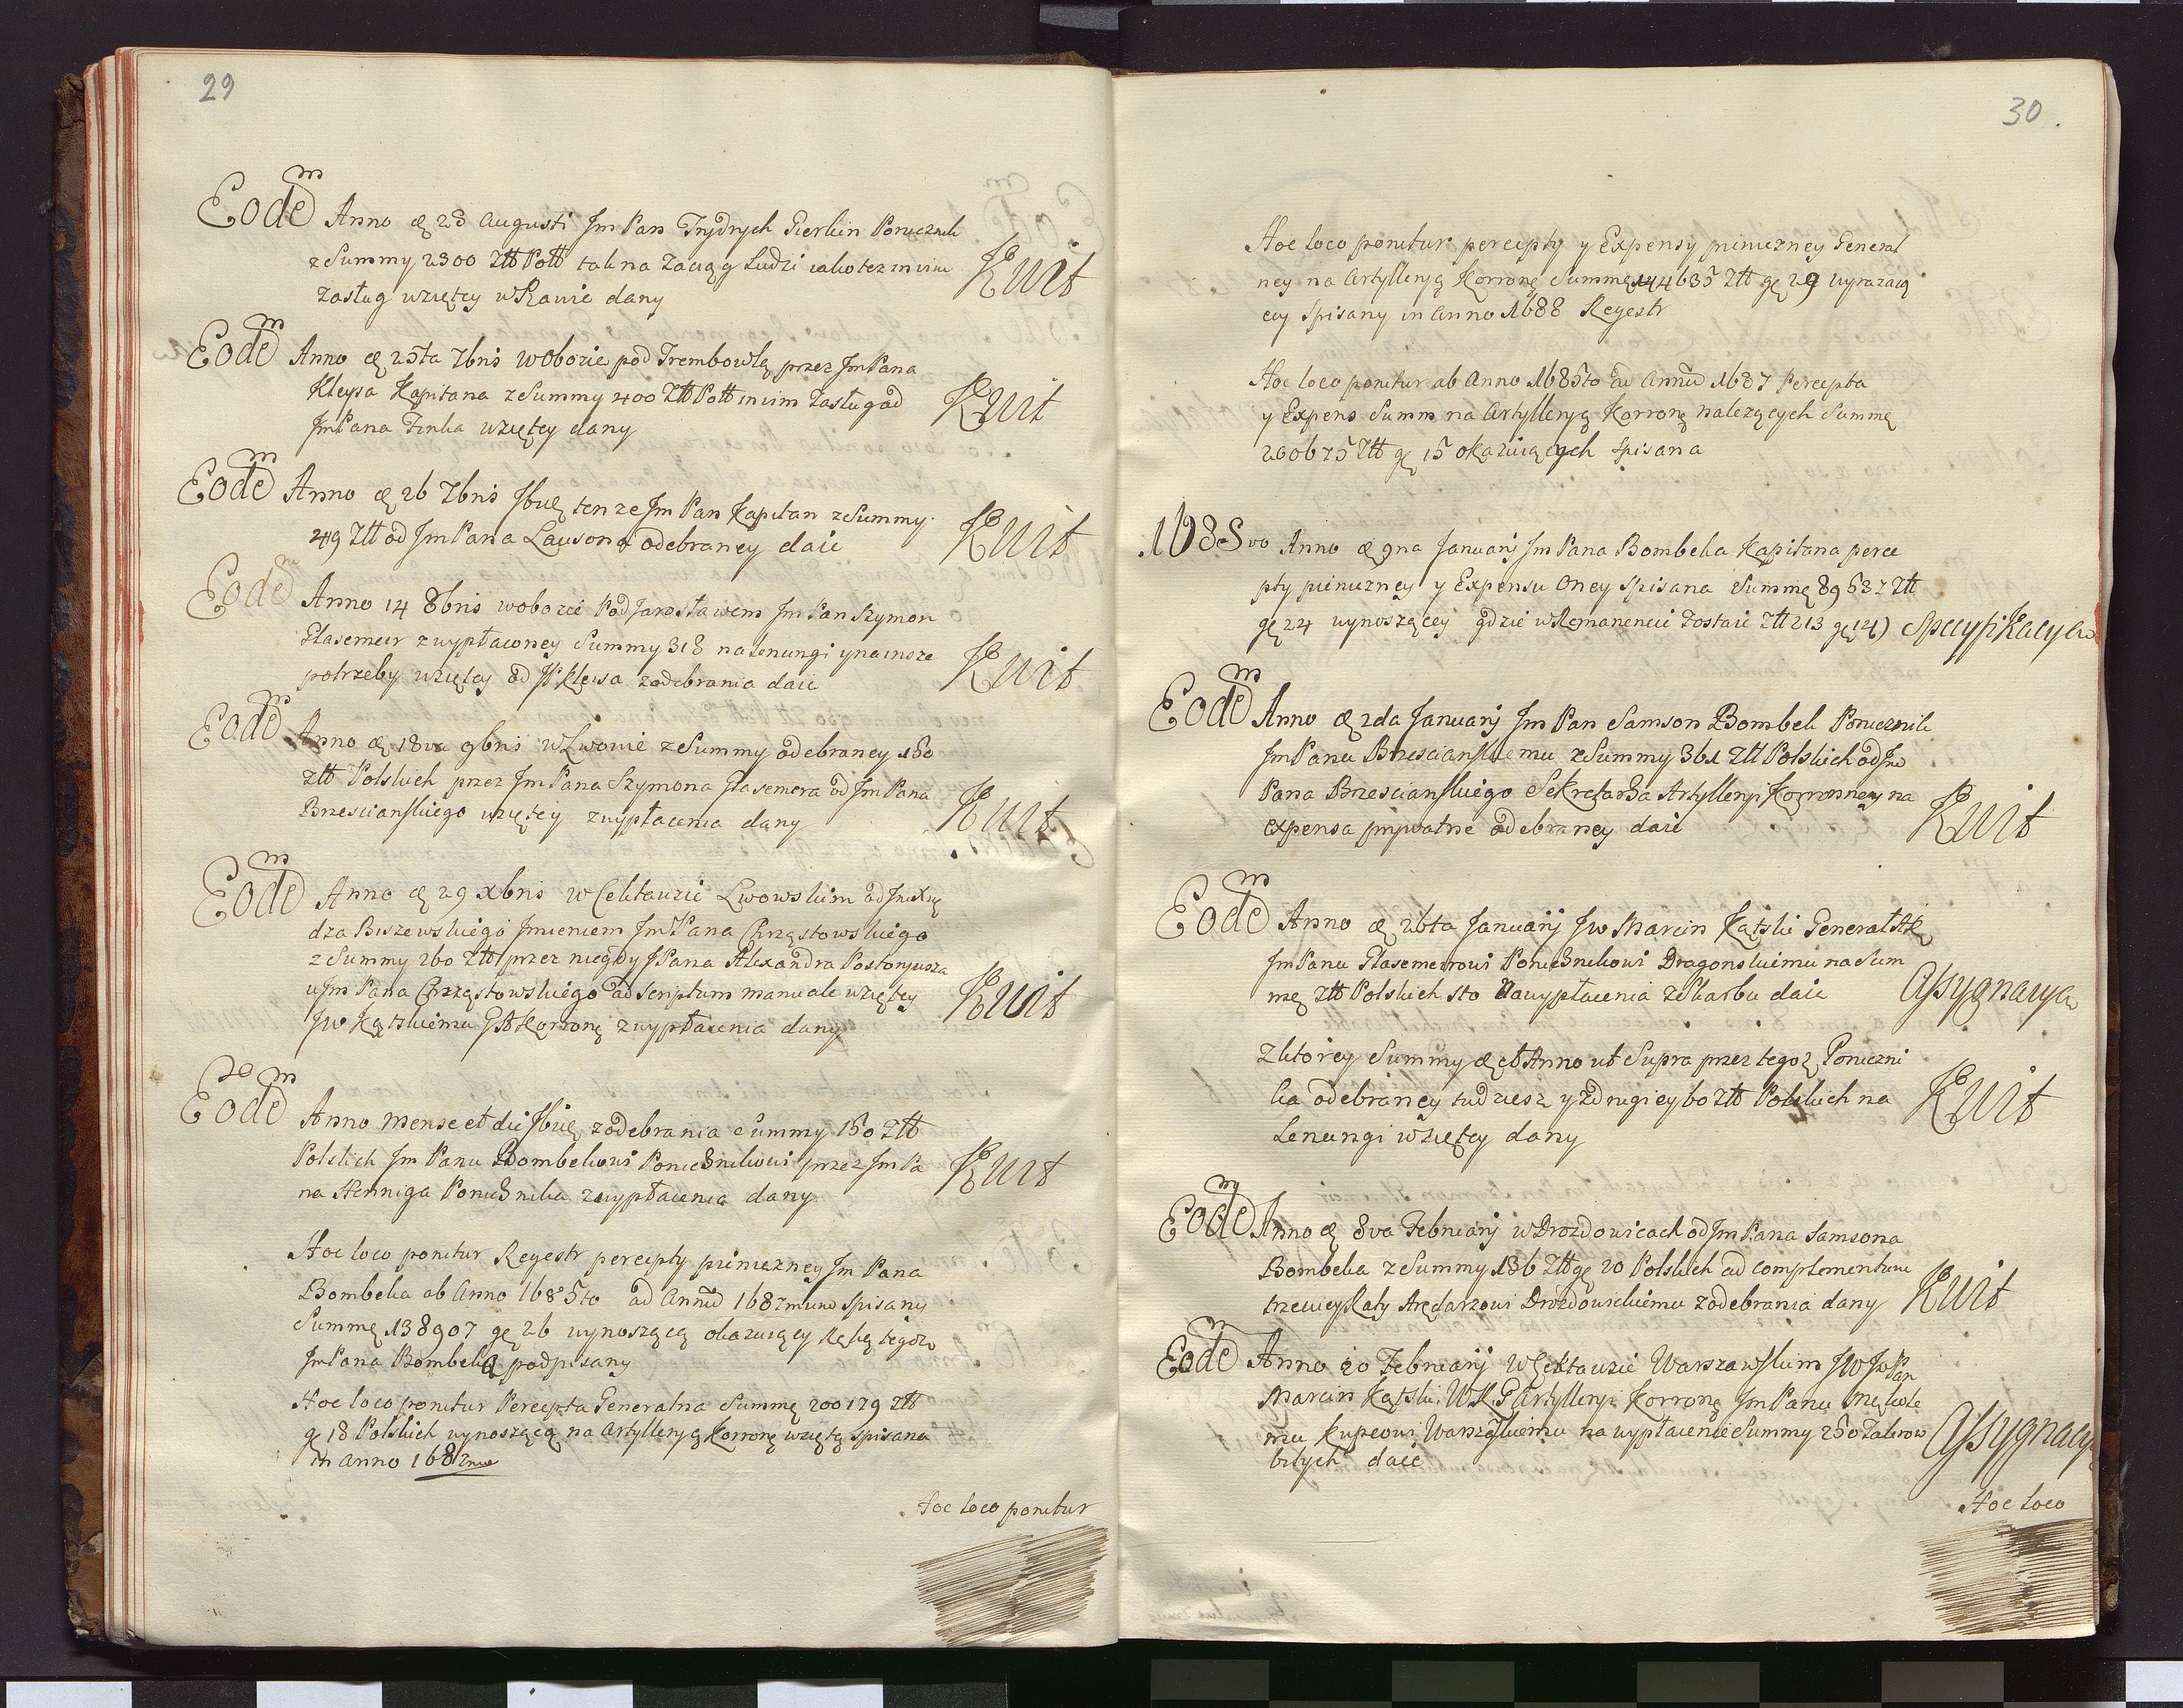 29
Eodem Anno d 28 Augusti Jm Pan Frydrych Gierkin Porucznik
z Summy 2300 Ztt Poltt tak na Zaciąg Ludzi iako tez in vim
zasług wziętey w Rawie dany Kwit
Eodem Anno d 25ta 7bris w Obozie pod Trembowlą przez Jm Pana
Kleysa Kapitana z Summy 400 Ztt Poltt in vim Zasług od
Jm Pana Finka wziętey dany Kwit
Eodem Anno d 26 7bris Ibidę tenze Jm Pan Kapitan z Summy
249 Ztt od Jm Pana Lausona odebraney daie Kwit
Eodem Anno 14 8bris w obozie Pod Jarosławiem Jm Pan Szymon
Glasemeir z wypłaconey Summy 318 na lenungi y na insze
potrzeby wziętey od JP Kleysa z odebrania daie Kwit
Eodem Anno d 18va 9bris w Lwowie z Summy odebraney 180
ztt Polskich przez Jm Pana Szymona Glasemera od Jm Pana
Brzescianskiego wziętey z wypłacenia dany Kwit
Eodem Anno d 29 Xbris w Cekhauzie Lwowskim od Jm Xię
dza Biszewskiego Jmieniem Jm Pana Chrząstowskiego
z Summy 260 Ztt przez niegdy JPana Alexandra Postoryusza
u Jm Pana Chrząstowskiego ad scriptum manuale wziętey
Jw Kątskiemu GA Korronę z wypłacenia dany Kwit
Eodem Anno mense et die Ibidę z odebrania Summy 150 Ztt
Polskich Jm Panu Bombekowi Porucznikowi przez Jm Pa
na Henniga Porucznika z wypłacenia dany Kwit
Hoc loco ponitur Regestr percepty pieniezney Jm Pana
Bombeka ab Anno 1685to ad Annũ 1687mum spisany
Summę 138907 gę 26 wynoszącą okazuiący Ręką tegoz
Jm Pana Bombeka podpisany
Hoc loco ponitur Percepta Generalna Summę 200179 ztt
gę 18 Polskich wynoszącą na Artylleryą Korronę wziętą spisana
in anno 1687mo
Hoc loco ponitur
30
Hoc loco ponitur percepty y Expensy pieniezney General
ney na Artylleryą Korronę Summę 144635 Ztt gę 29 wyrazaią
cey spisany in Anno 1688 Regestr
Hoc loco ponitur ab Anno 1685to ad Annũ 1687 Percepta
y Expens Summ na Artylleryą Korronę nalezących Summę
200675 Ztt gę 15 okazuiących spisana
1688vo Anno d 9na Januarij Jm Pana Bombeka Kapitana perce
pty pieniezney y Expensu Oney spisana Summę 89537 Ztt
gę 24 wynoszącey gdzie w Remanencie zostaie Ztt 213 gę 12 Specyfikacya
Eodem Anno d 2da Januarij Jm Pan Samson Bombek Porucznik
Jm Panu Brzescianskiemu z Summy 361 Ztt Polskich od Jm
Pana Brzescianskiego Sekretarza Artylleryi Korronney na
expensa prywatne odebraney daie Kwit
Eodem Anno d 26ta Januarij Jw Marcin Kątski Generał A K
Jm Panu Glasemeirowi Porucznikowi Dragonskiemu na Sum
mę ztt Polskich sto do wypłacenia z Skarbu daie Assygnacya
Z ktorey Summy d et Anno ut Supra przez tegoz Poruczni
ka odebraney tudziesz y z drugiey 60 ztt Polskich na
Lenungi wziętey dany Kwit
Eodem Anno d 8va Februarij w Drozdowicach od Jm Pana Samsona
Bombeka z Summy 136 Ztt gę 20 Polskich ad complementum
trzeciey Raty Arędarzowi Drozdowskiemu z odebrania dany Kwit
Eodem Anno 20 Februarij W Cekhauzie Warszawskim JW Jm Pan
Marcin Kątski W K G Artylleryi Korronę Jm Panu
mu Kupcowi Warszawskiemu na wypłacenie Summy 250 Talerow
bitych daie Assygnacyą
Hoc loco